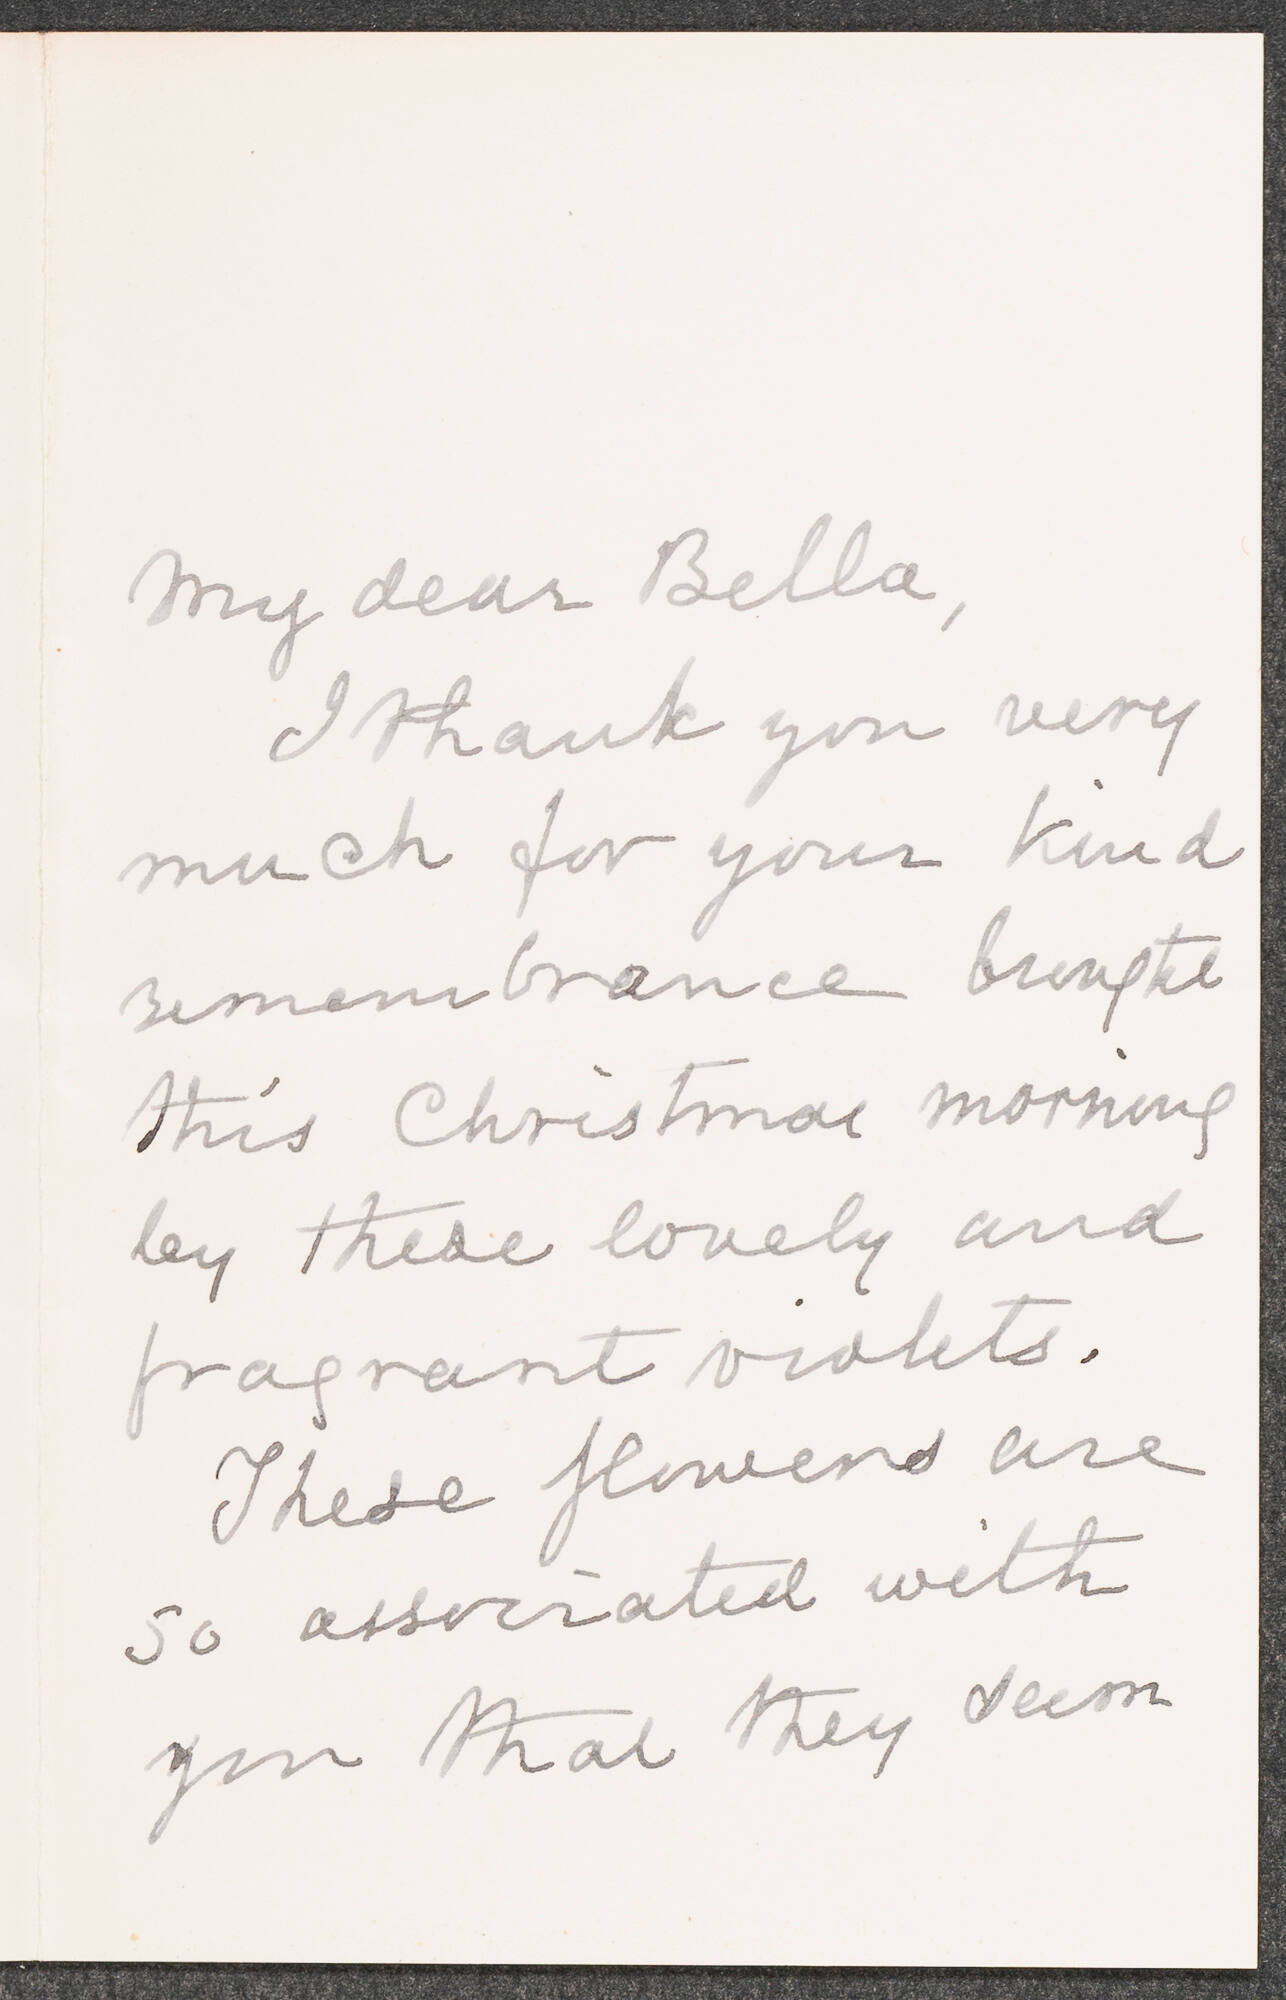 My dear Bella,
I thank you very
much for your kind
remembrance brought
this Christmas morning
by these lovely and
fragrant violets.
These flowers are
so associated with
you that they seem